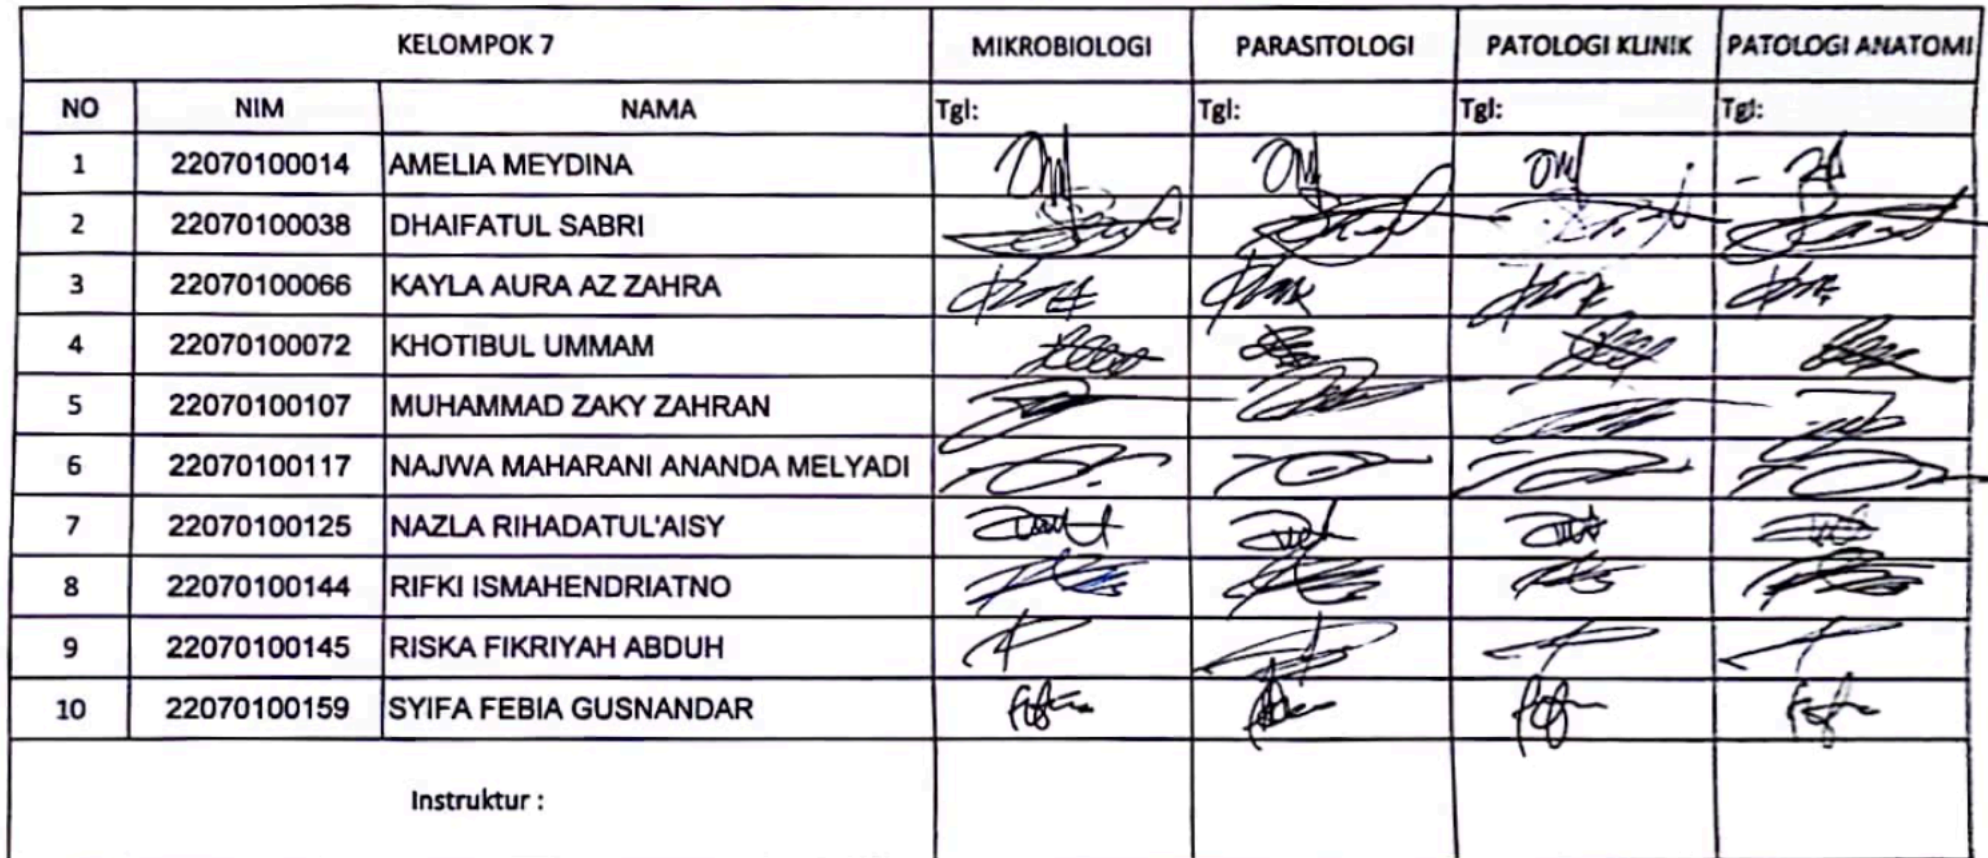 KELOMPOK 7 MIKROBIOLOGI PARASITOLOGI PATOLOGI KLINIK PATOLOGI ANATOMI
NO NIM NAMA Tgl: Tgl: Tgl: Tgl:
1 22070100014 AMELIA MEYDINA
2 22070100038 DHAIFATUL SABRI
3 22070100066 KAYLA AURA AZ ZAHRA
4 22070100072 KHOTIBUL UMMAM
5 22070100107 MUHAMMAD ZAKY ZAHRAN
6 22070100117 NAJWA MAHARANI ANANDA MELYADI
7 22070100125 NAZLA RIHADATUL'AISY
8 22070100144 RIFKI ISMAHENDRIATNO
9 22070100145 RISKA FIKRIYAH ABDUH
10 22070100159 SYIFA FEBIA GUSNANDAR
Instruktur :